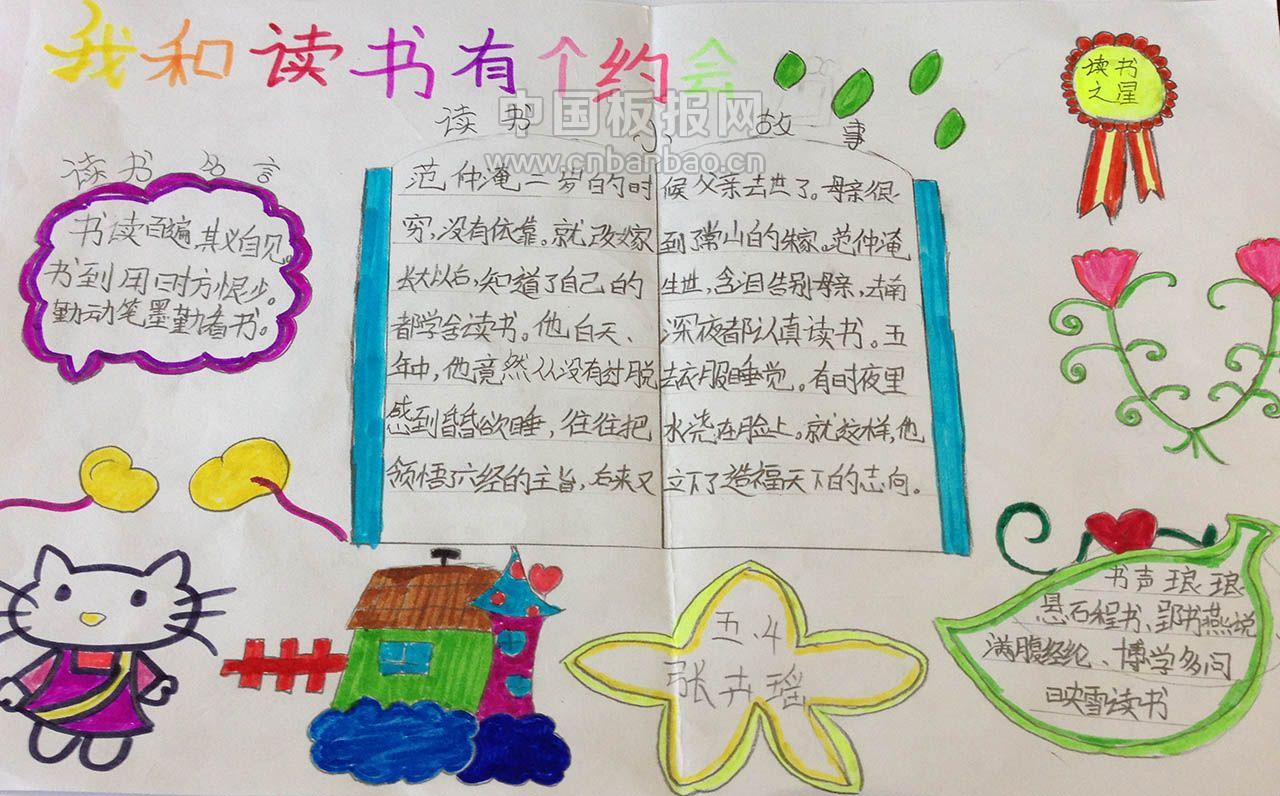 我和读书有个约会
中国板报网
www.cnbanbao.cn
读书小故事
读书之星
读书名言
书读百遍,其义自见。
书到用时方恨少。
勤动笔墨勤看书。
范仲淹二岁的时候父亲去世了。母亲很
穷,没有依靠。就改嫁到了常山的朱家。范仲淹
长大以后,知道了自己的生世,含泪告别母亲,去南
都学舍读书。他白天、深夜都认真读书。五
年中,他竟然从没有过脱去衣服睡觉。有时夜里
感到昏昏欲睡,往往把水浇在脸上。就这样,他
领悟了六经的主旨,后来又立下了造福天下的志向。
五.4
张卉瑶
书声琅琅
悬石程书、郢书燕说
满腹经纶、博学多问
映雪读书